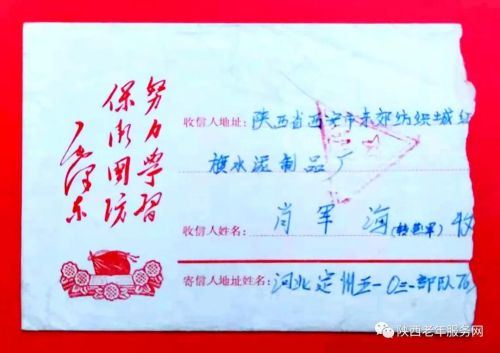 努力學習
保衛國防
毛澤东
收信人地址:陕西省西安市东郊纺织城红
旗水泥制品厂
收信人姓名:肖军海(转业军)收
寄信人地址姓名:河北定州五一0三部队76
陕西老年服务网